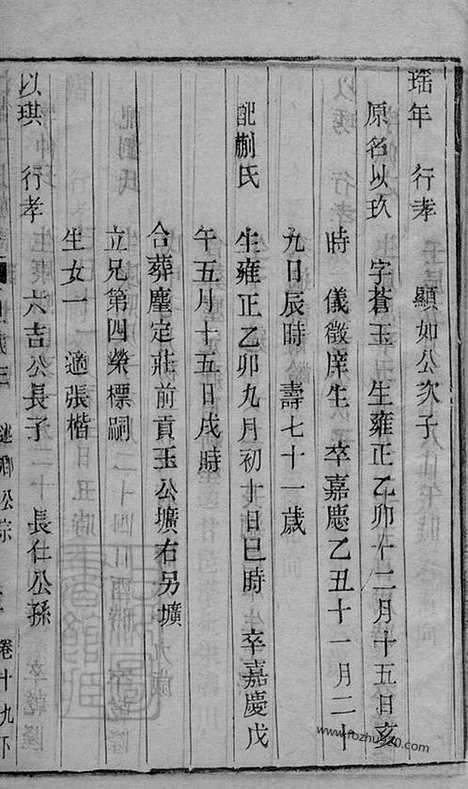 瑶年 行孝 顯如公次子
原名以玖 字蒼玉 生雍正乙卯十二月十五日亥
時 儀徵庠生 卒嘉慶乙丑十一月二十
九日辰時 壽七十一歲
配蒯氏 生雍正乙卯九月初十日巳時 卒嘉慶戊
午五月十五日戌時
合葬塵定莊前貢玉公壙右另壙
立兄第四榮標嗣
生女一 適張楷
以琪 行孝 六吉公長子 長仕公孫
公宗 卷十九下
www.fozhu920.com